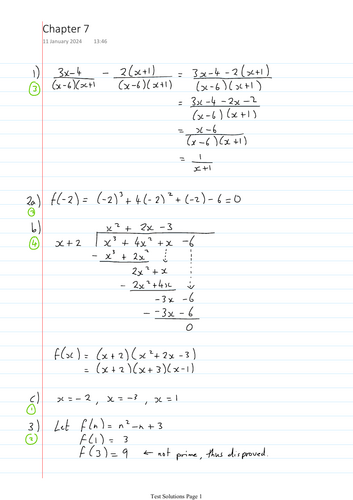 Chapter 7
11 January 2024 13:46
1) (3x-4)/((x-6)(x+1) - (2(x+1))/((x-6)(x+1)) = (3x-4-2(x+1))/((x-6)(x+1))
3
= (3x-4-2x-2)/((x-6)(x+1))
= (x-6)/((x-6)(x+1))
= 1/(x+1)
2a) f(-2) = (-2)³ + 4(-2)² + (-2) - 6 = 0
b) x² + 2x - 3
4 x+2 x³ + 4x² + x - 6
- x³ + 2x²
2x² + x
- 2x² + 4x
-3x - 6
- -3x - 6
0
f(x) = (x+2)(x²+2x-3)
= (x+2)(x+3)(x-1)
c) x = -2, x = -3, x = 1
1
3) Let f(n) = n² - n + 3
2 f(1) = 3
f(3) = 9 ← not prime, thus disproved.
Test Solutions Page 1